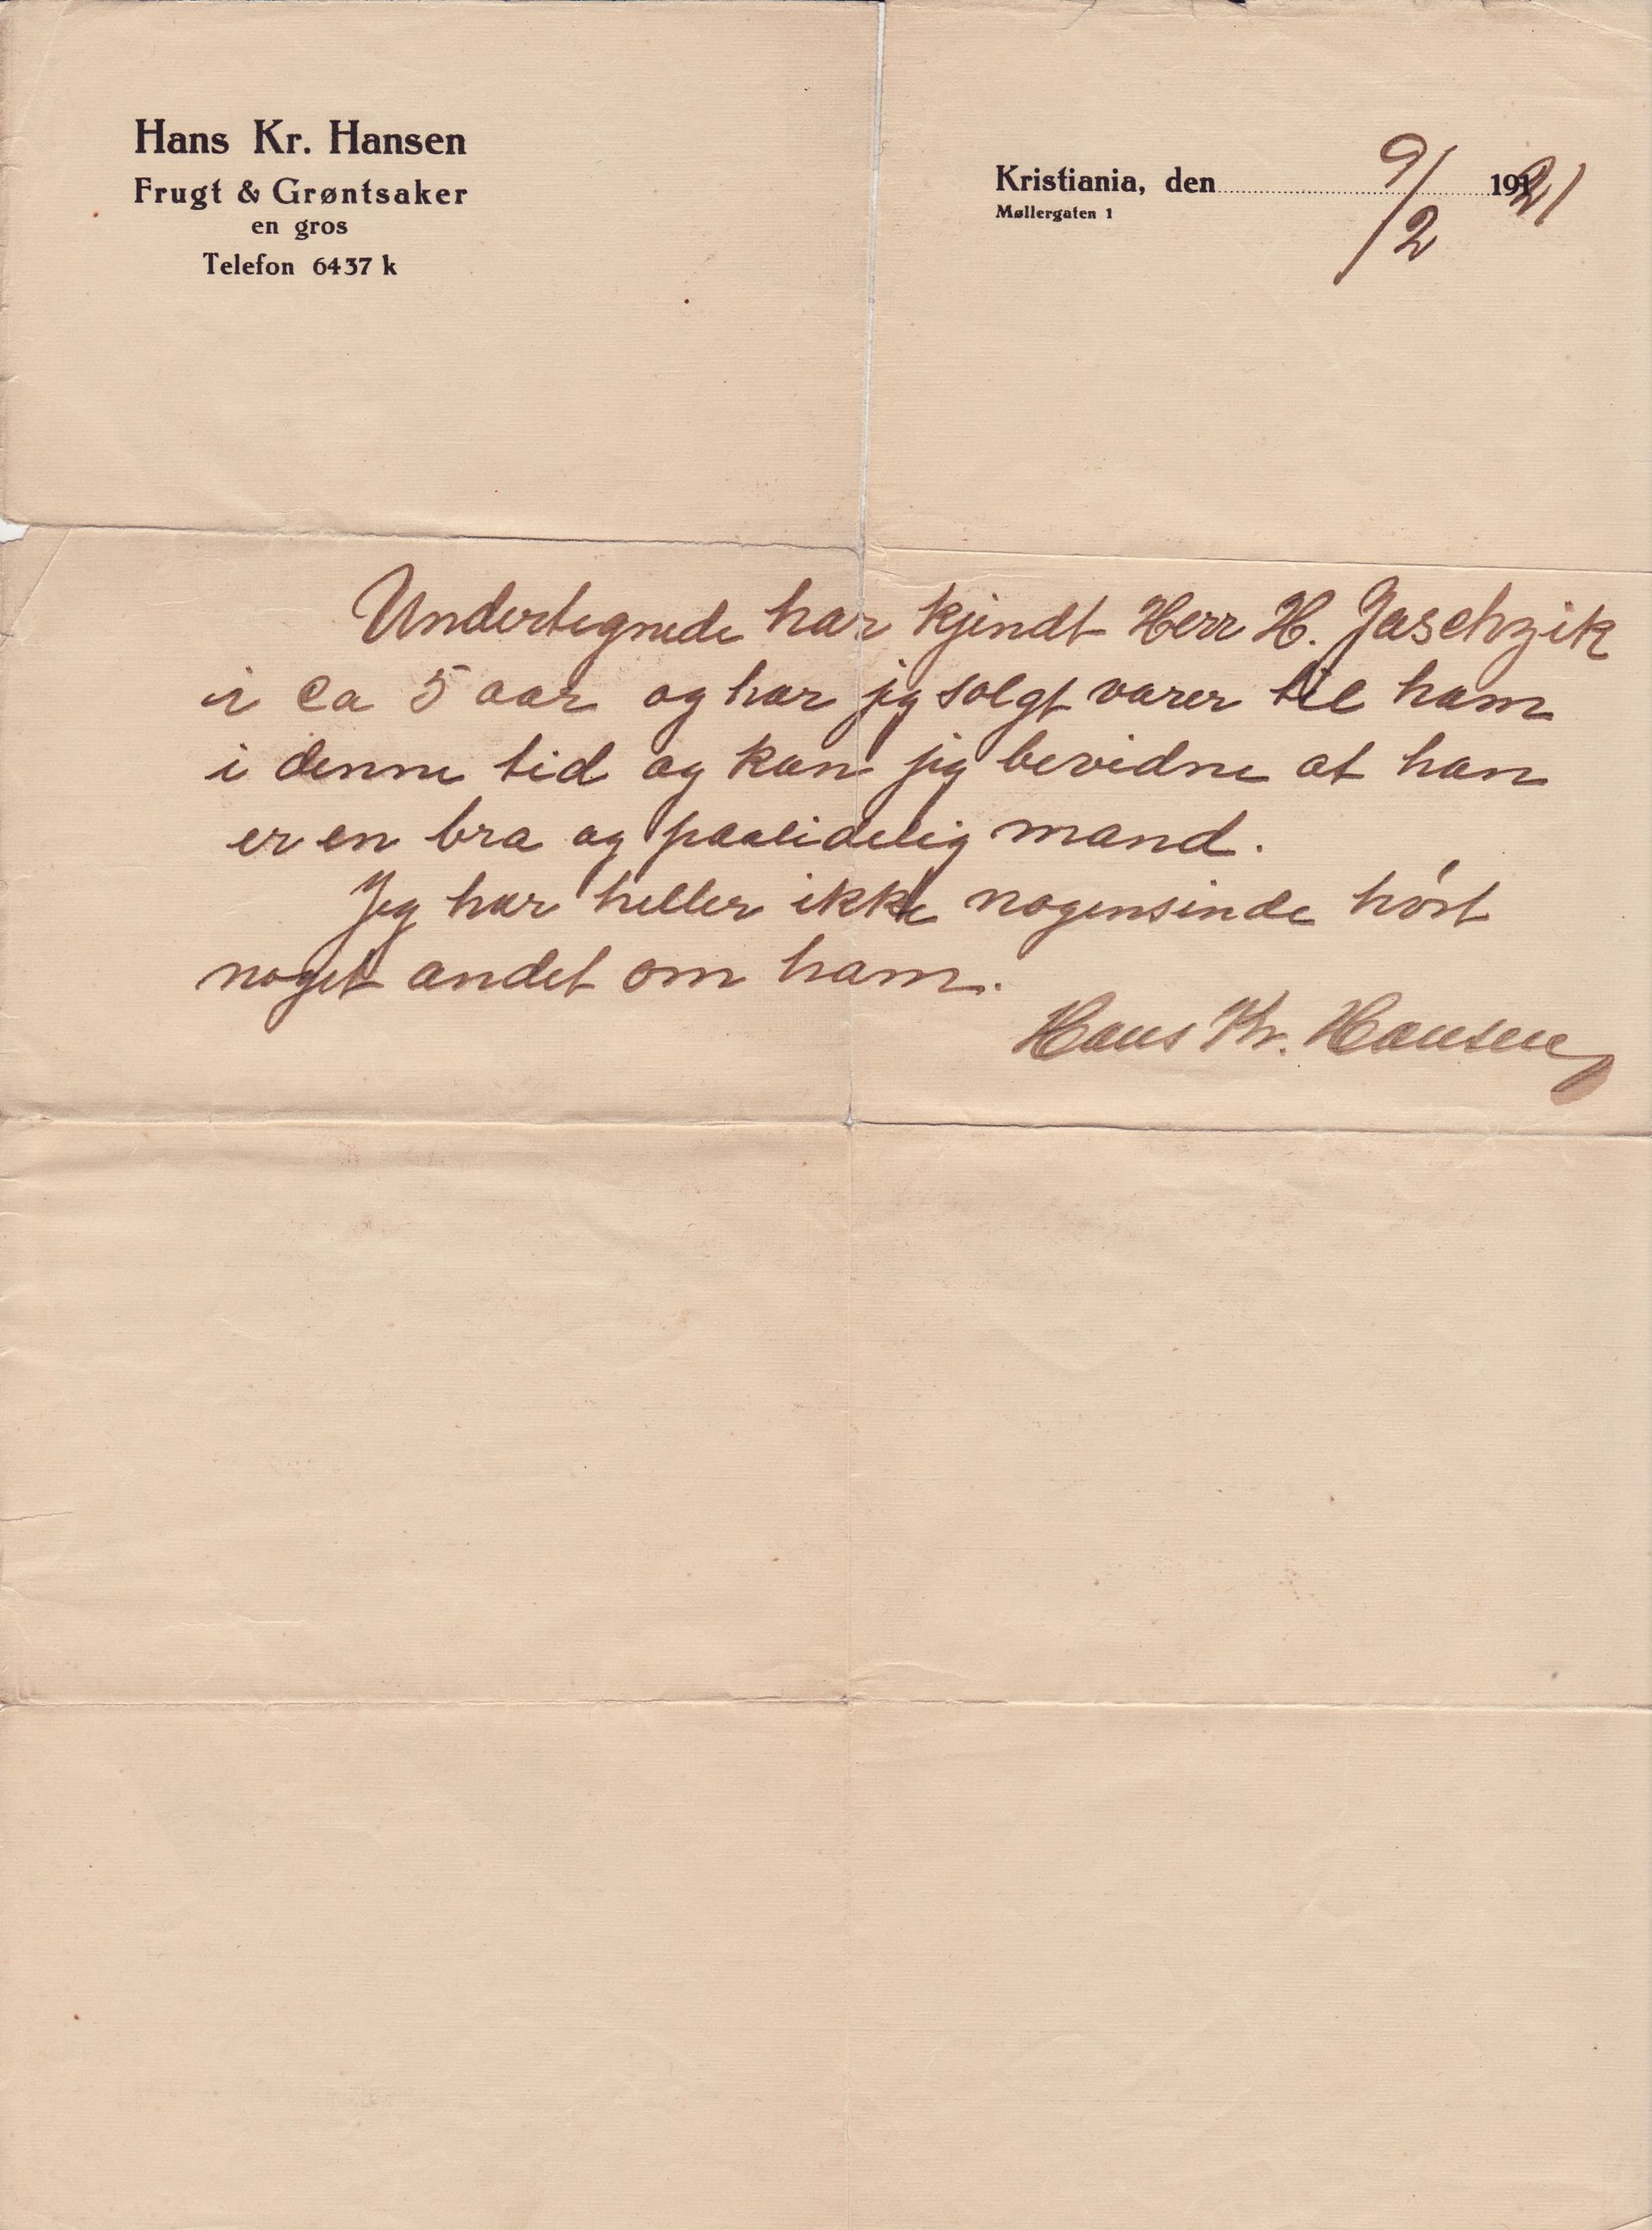 Hans Kr. Hansen
Frugt & Grøntsaker
en gros
Telefon 6437 k
Kristiania, den 9/2 1921
Møllergaten 1
Undertegnede har kjendt Herr H. Jaschzik
i ca 5 aar og har jeg solgt varer til ham
i denne tid og kan jeg bevidne at han
er en bra og paalidelig mand.
Jeg har heller ikke nogensinde hørt
noget andet om ham.
Hans Kr. Hansen